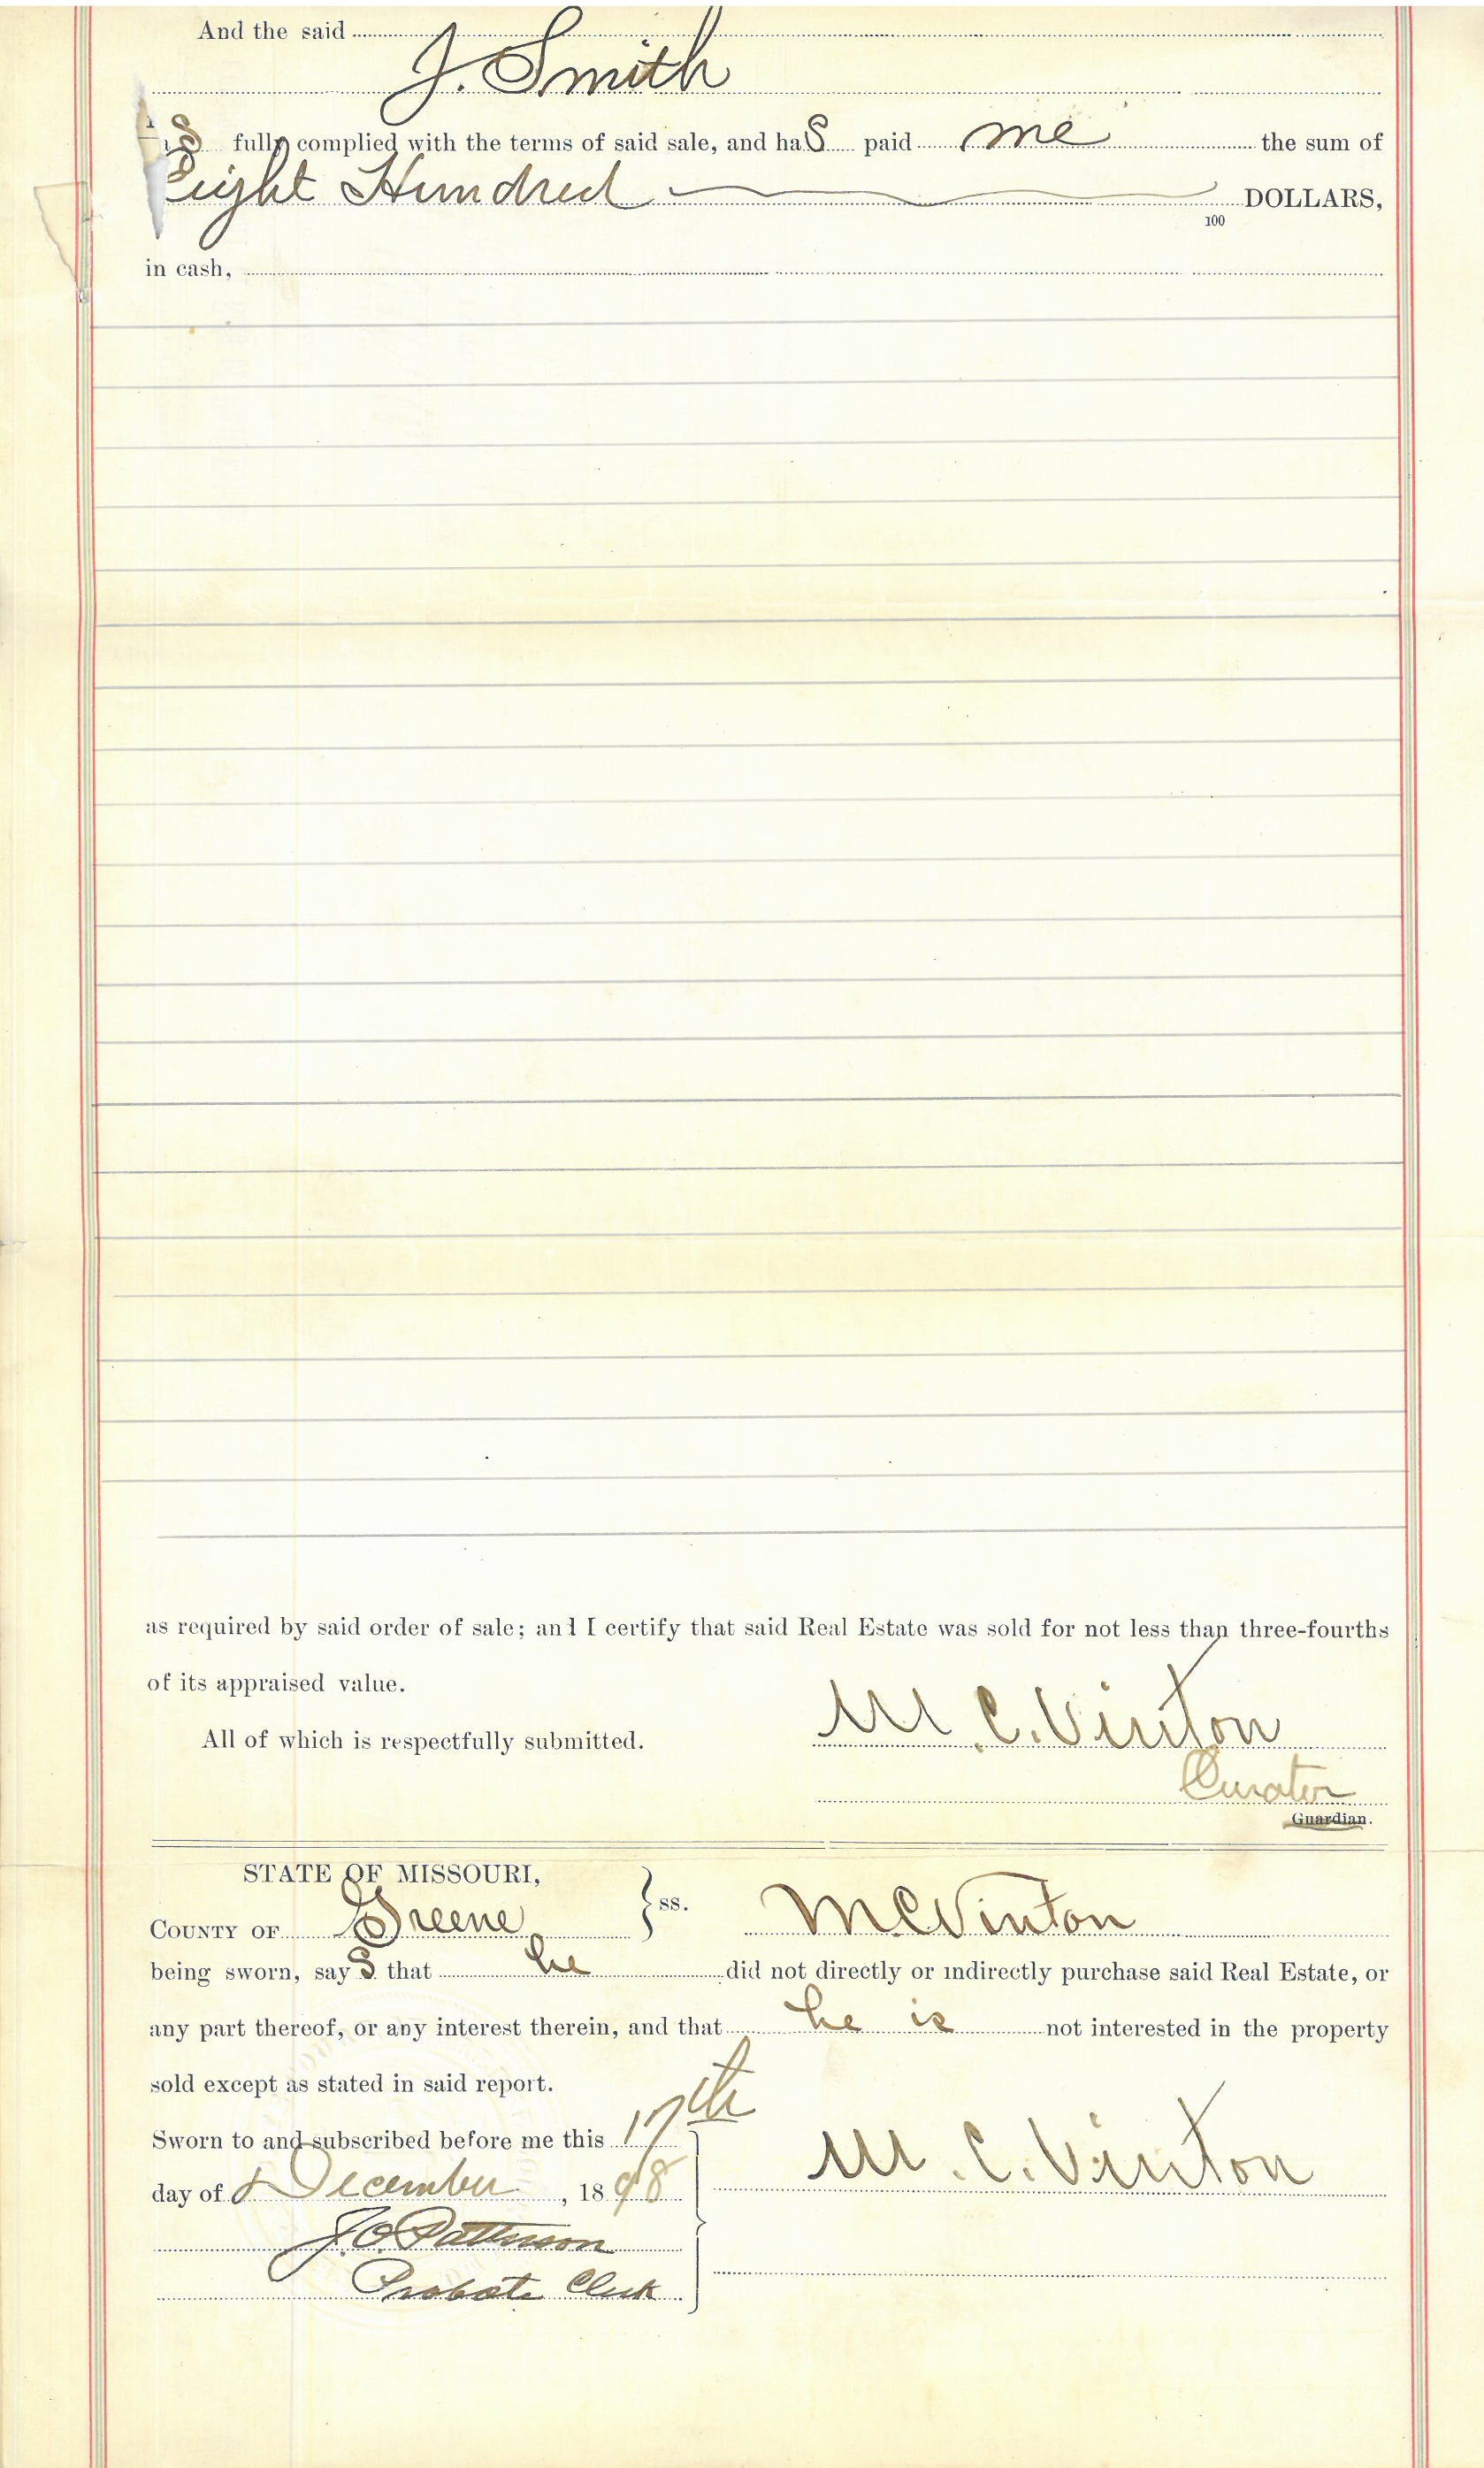 And the said
J. Smith
fully complied with the terms of said sale, and has paid me the sum of
Eight Hundred DOLLARS,
100
in cash,
as required by said order of sale; and I certify that said Real Estate was sold for not less than three-fourths
of its appraised value.
All of which is respectfully submitted. M. C. Vinton
Curator
Guardian.
STATE OF MISSOURI,
COUNTY OF Greene ss. M C Vinton
being sworn, says that he did not directly or indirectly purchase said Real Estate, or
any part thereof, or any interest therein, and that he is not interested in the property
sold except as stated in said report.
Sworn to and subscribed before me this 17th
day of December, 1898 M. C. Vinton
J. O. Patterson
Probate Clerk